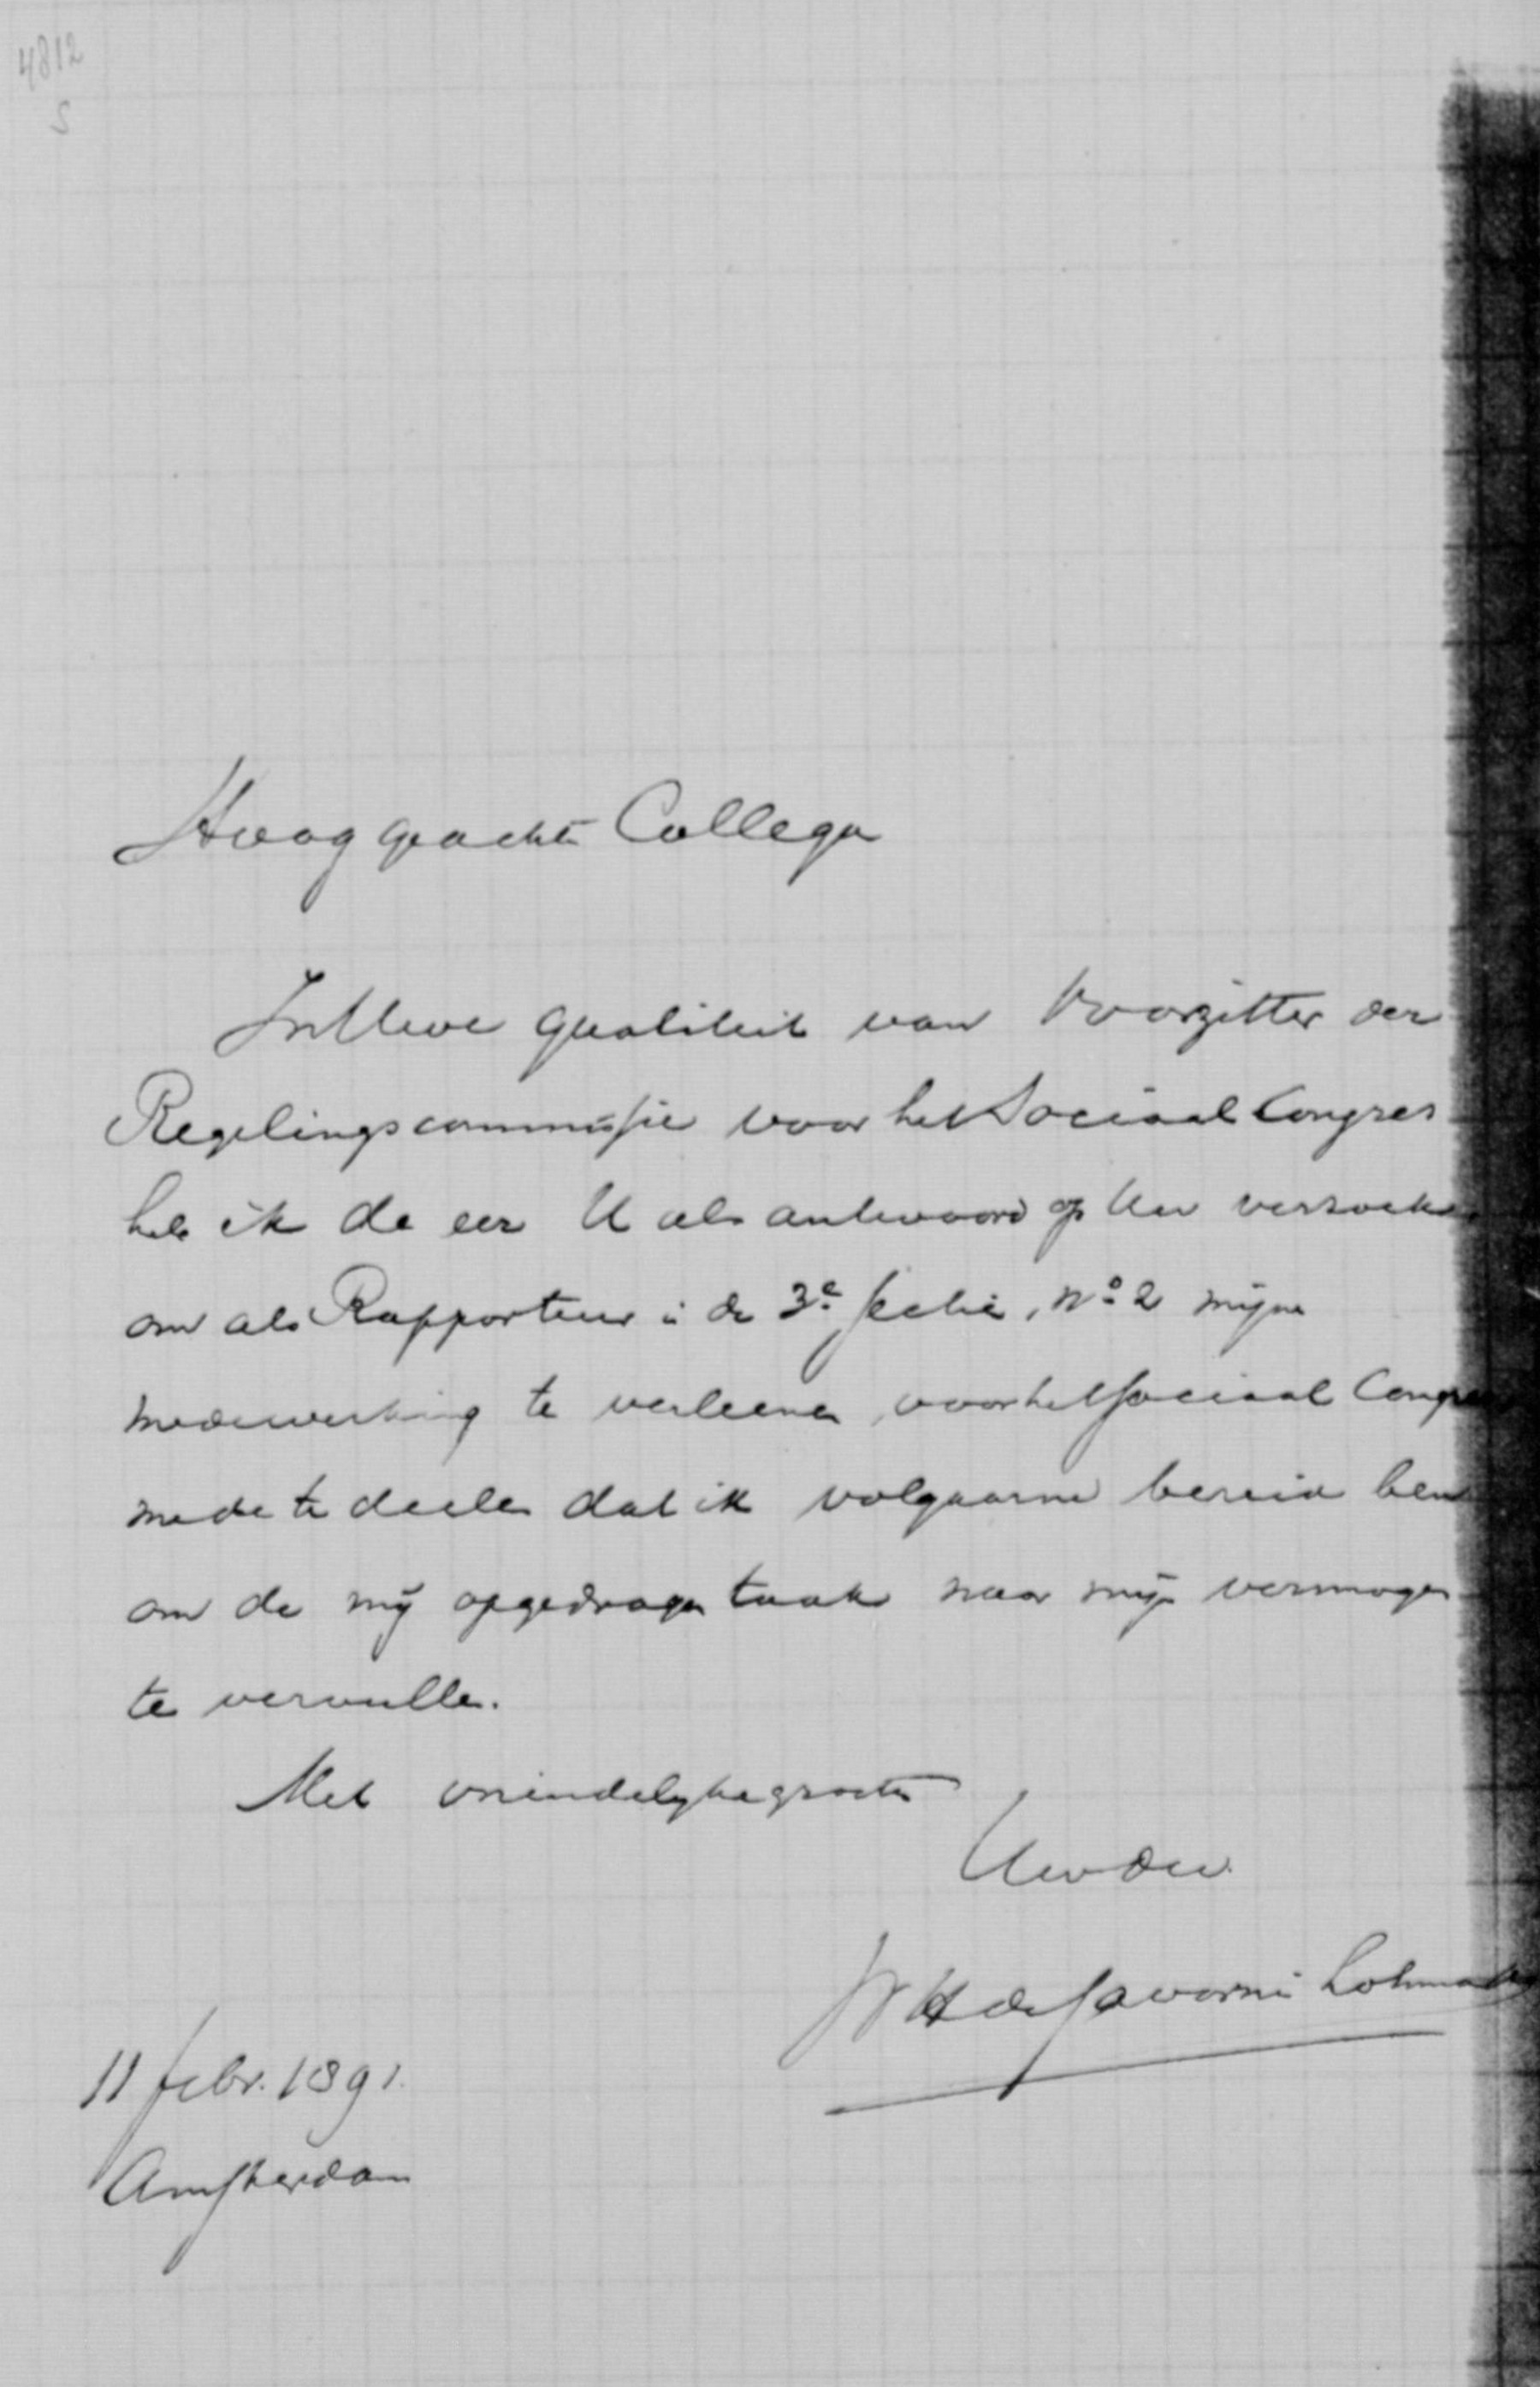 4812
S
Hooggeachte Collega
In Uwe qualiteit van Voorzitter der
Regelingscommissie voor het Sociaal Congres
heb ik de eer U als antwoord op Uw verzoek
om als Rapporteur in de 3e sectie, No 2 mijne
medewerking te verleenen, voor het sociaal Congres
mede te deelen dat ik volgaarne bereid ben
om de mij opgedragen taak naar mijn vermogen
te vervullen.
Met vriendelyke groeten
Uwdw.
W H de Savornin Lohman
11 febr. 1891.
Amsterdam